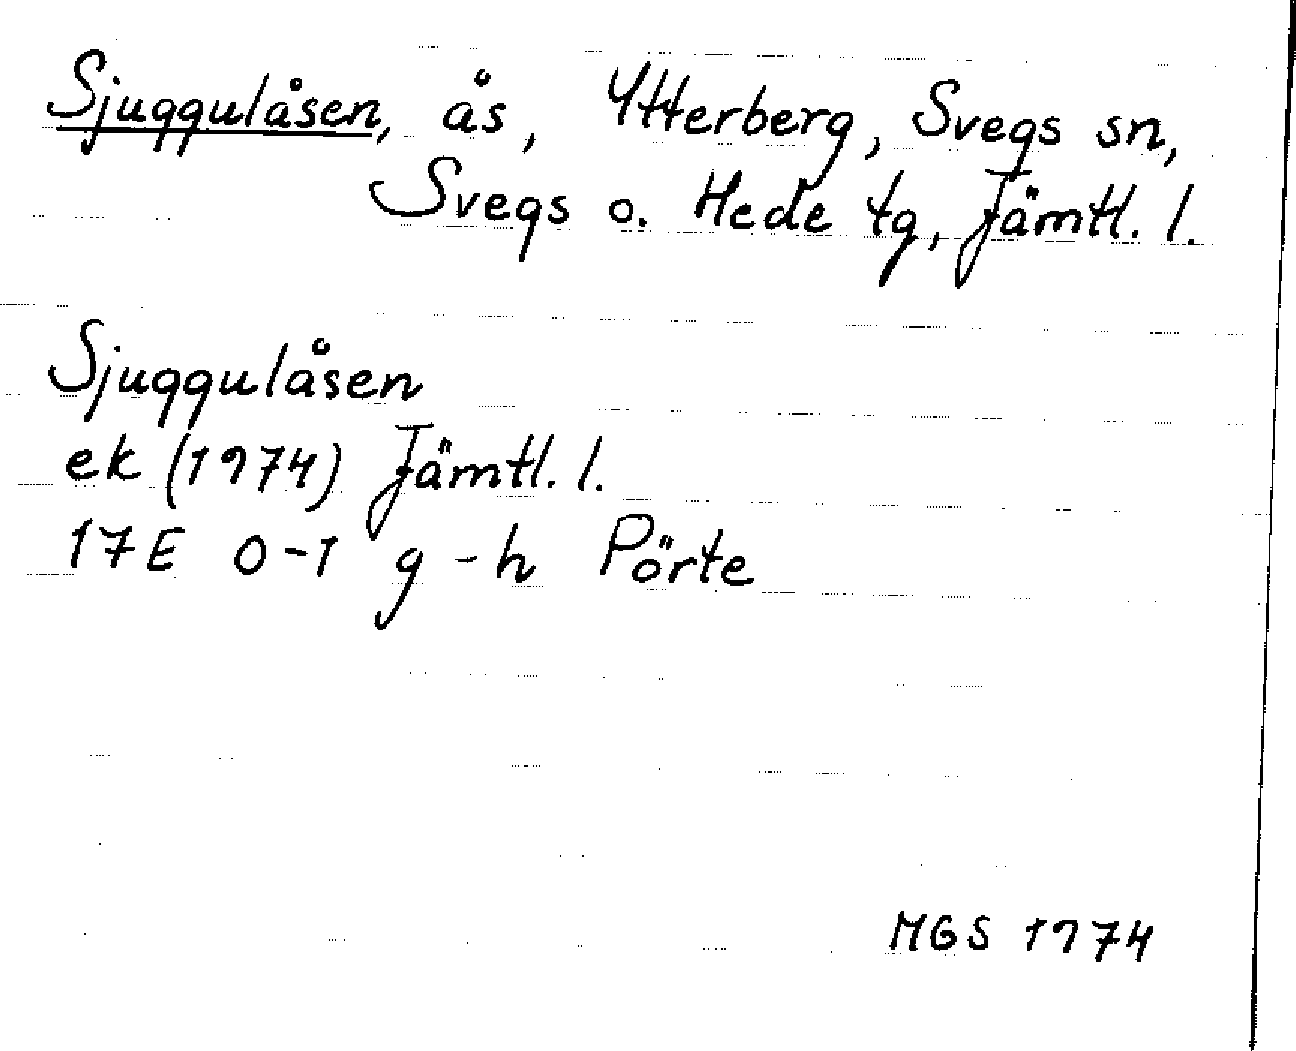 Sjuggulåsen, ås, Ytterberg, Svegs sn,
Svegs o. Hede tg, Jämtl. l.
Sjuggulåsen
ek (1974) Jämtl. l.
17E 0-1 g-h Pörte
MGS 1974